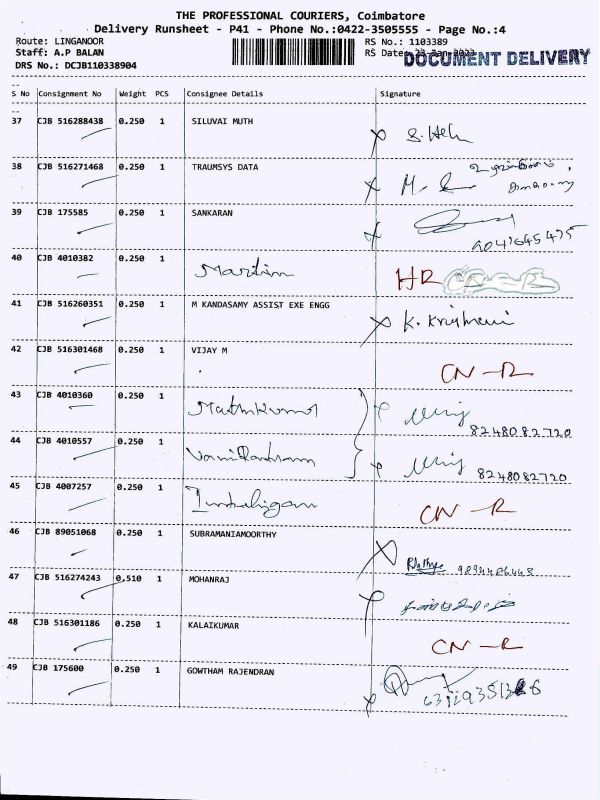 THE PROFESSIONAL COURIERS, Coimbatore
Delivery Runsheet - P41 - Phone No.:0422-3505555 - Page No.:4
Route: LINGANOOR RS No.: 1103389
Staff: A.P BALAN RS Date: 23-Jan-2023 DOCUMENT DELIVERY
DRS No.: DCJB110338904
S No Consignment No Weight PCS Consignee Details Signature
37 CJB 516288438 0.250 1 SILUVAI MUTH
38 CJB 516271468 0.250 1 TRAUMSYS DATA
39 CJB 175585 0.250 1 SANKARAN
9041645475
40 CJB 4010382 0.250 1 Martin HR
41 CJB 516260351 0.250 1 M KANDASAMY ASSIST EXE ENGG
42 CJB 516301468 0.250 1 VIJAY M CN-R
43 CJB 4010360 0.250 1 Mathikumar
8248082720
44 CJB 4010557 0.250 1
8248082720
45 CJB 4007257 0.250 1 CN-R
46 CJB 89051068 0.250 1 SUBRAMANIAMOORTHY
47 CJB 516274243 0.510 1 MOHANRAJ
48 CJB 516301186 0.250 1 KALAIKUMAR CN-R
49 CJB 175600 0.250 1 GOWTHAM RAJENDRAN